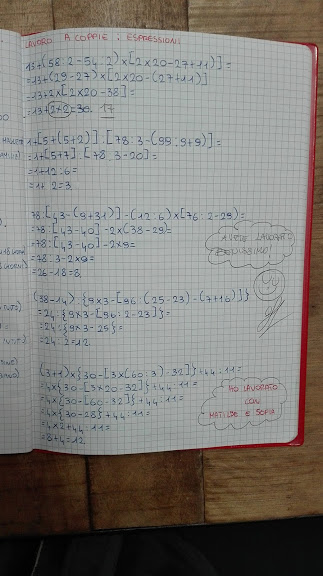 LAVORO A COPPIE: ESPRESSIONI
13+(58:2-54:2)×[2×20-27+11)]=
=13+(29-27)×[2×20-(27+11)]
=13+2×[2×20-38]=
=13+2×2=30. 17
1+[5+(5+2)]:[78:3-(99:9+9)]=
=1+[5+7]:[78:3-20]=
=1+12:6=
=1+2=3.
78:[43-(9+31)]-(12:6)×[76:2-29)=
=78:[43-40]-2×(38-29)=
=78:[43-40]-2×9=
=78:3-2×9=
=26-18=8.
AVETE LAVORATO
BENISSIMO!
(38-14):{9×3-[96:(25-23)-(7+16)]}
=24:{9×3-[96:2-23]}=
=24:{9×3-25}=
=24:2=12.
(3+1)×{30-[3×(60:3)-32]}+44:11=
=4×{30-[3×20-32]}+44:11=
=4×{30-[60-32]}+44:11=
=4×{30-28}+44:11=
=4×2+44:11=
=8+4=12.
HO LAVORATO
CON
MATILDE E SOFIA